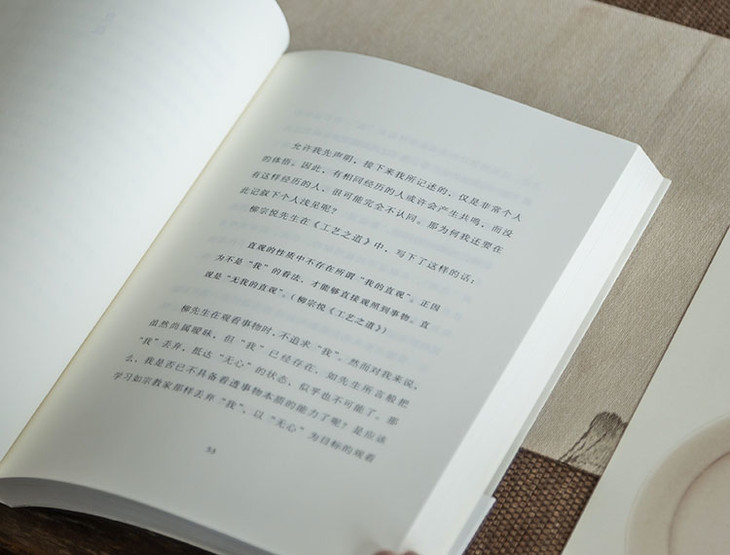 允许我先声明，接下来我所记述的，仅是非常个人
的体悟。因此，有相同经历的人或许会产生共鸣，而没
有这样经历的人，很可能完全不认同。那为何我还要在
此记叙下个人浅见呢？
柳宗悦先生在《工艺之道》中，写下了这样的话：
直观的性质中不存在所谓“我的直观”。正因
为不是“我”的看法，才能够直接观照到事物。直
观是“无我的直观”。（柳宗悦《工艺之道》）
柳先生在观看事物时，不追求“我”。然而对我来说，
虽然尚属暧昧，但“我”已经存在，如先生所言般把
“我”丢弃，抵达“无心”的状态，似乎也不可能了。那
么，我是否已不具备看透事物本质的能力了呢？是应该
学习如宗教家那样丢弃“我”，以“无心”为目标的观看
53